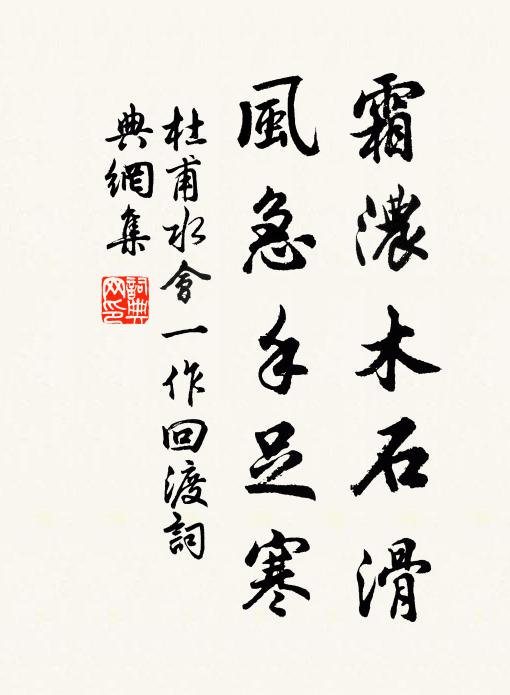 霜濃木石滑
風急手足寒
杜甫水會一作回渡詞
典網集
詞典
网印